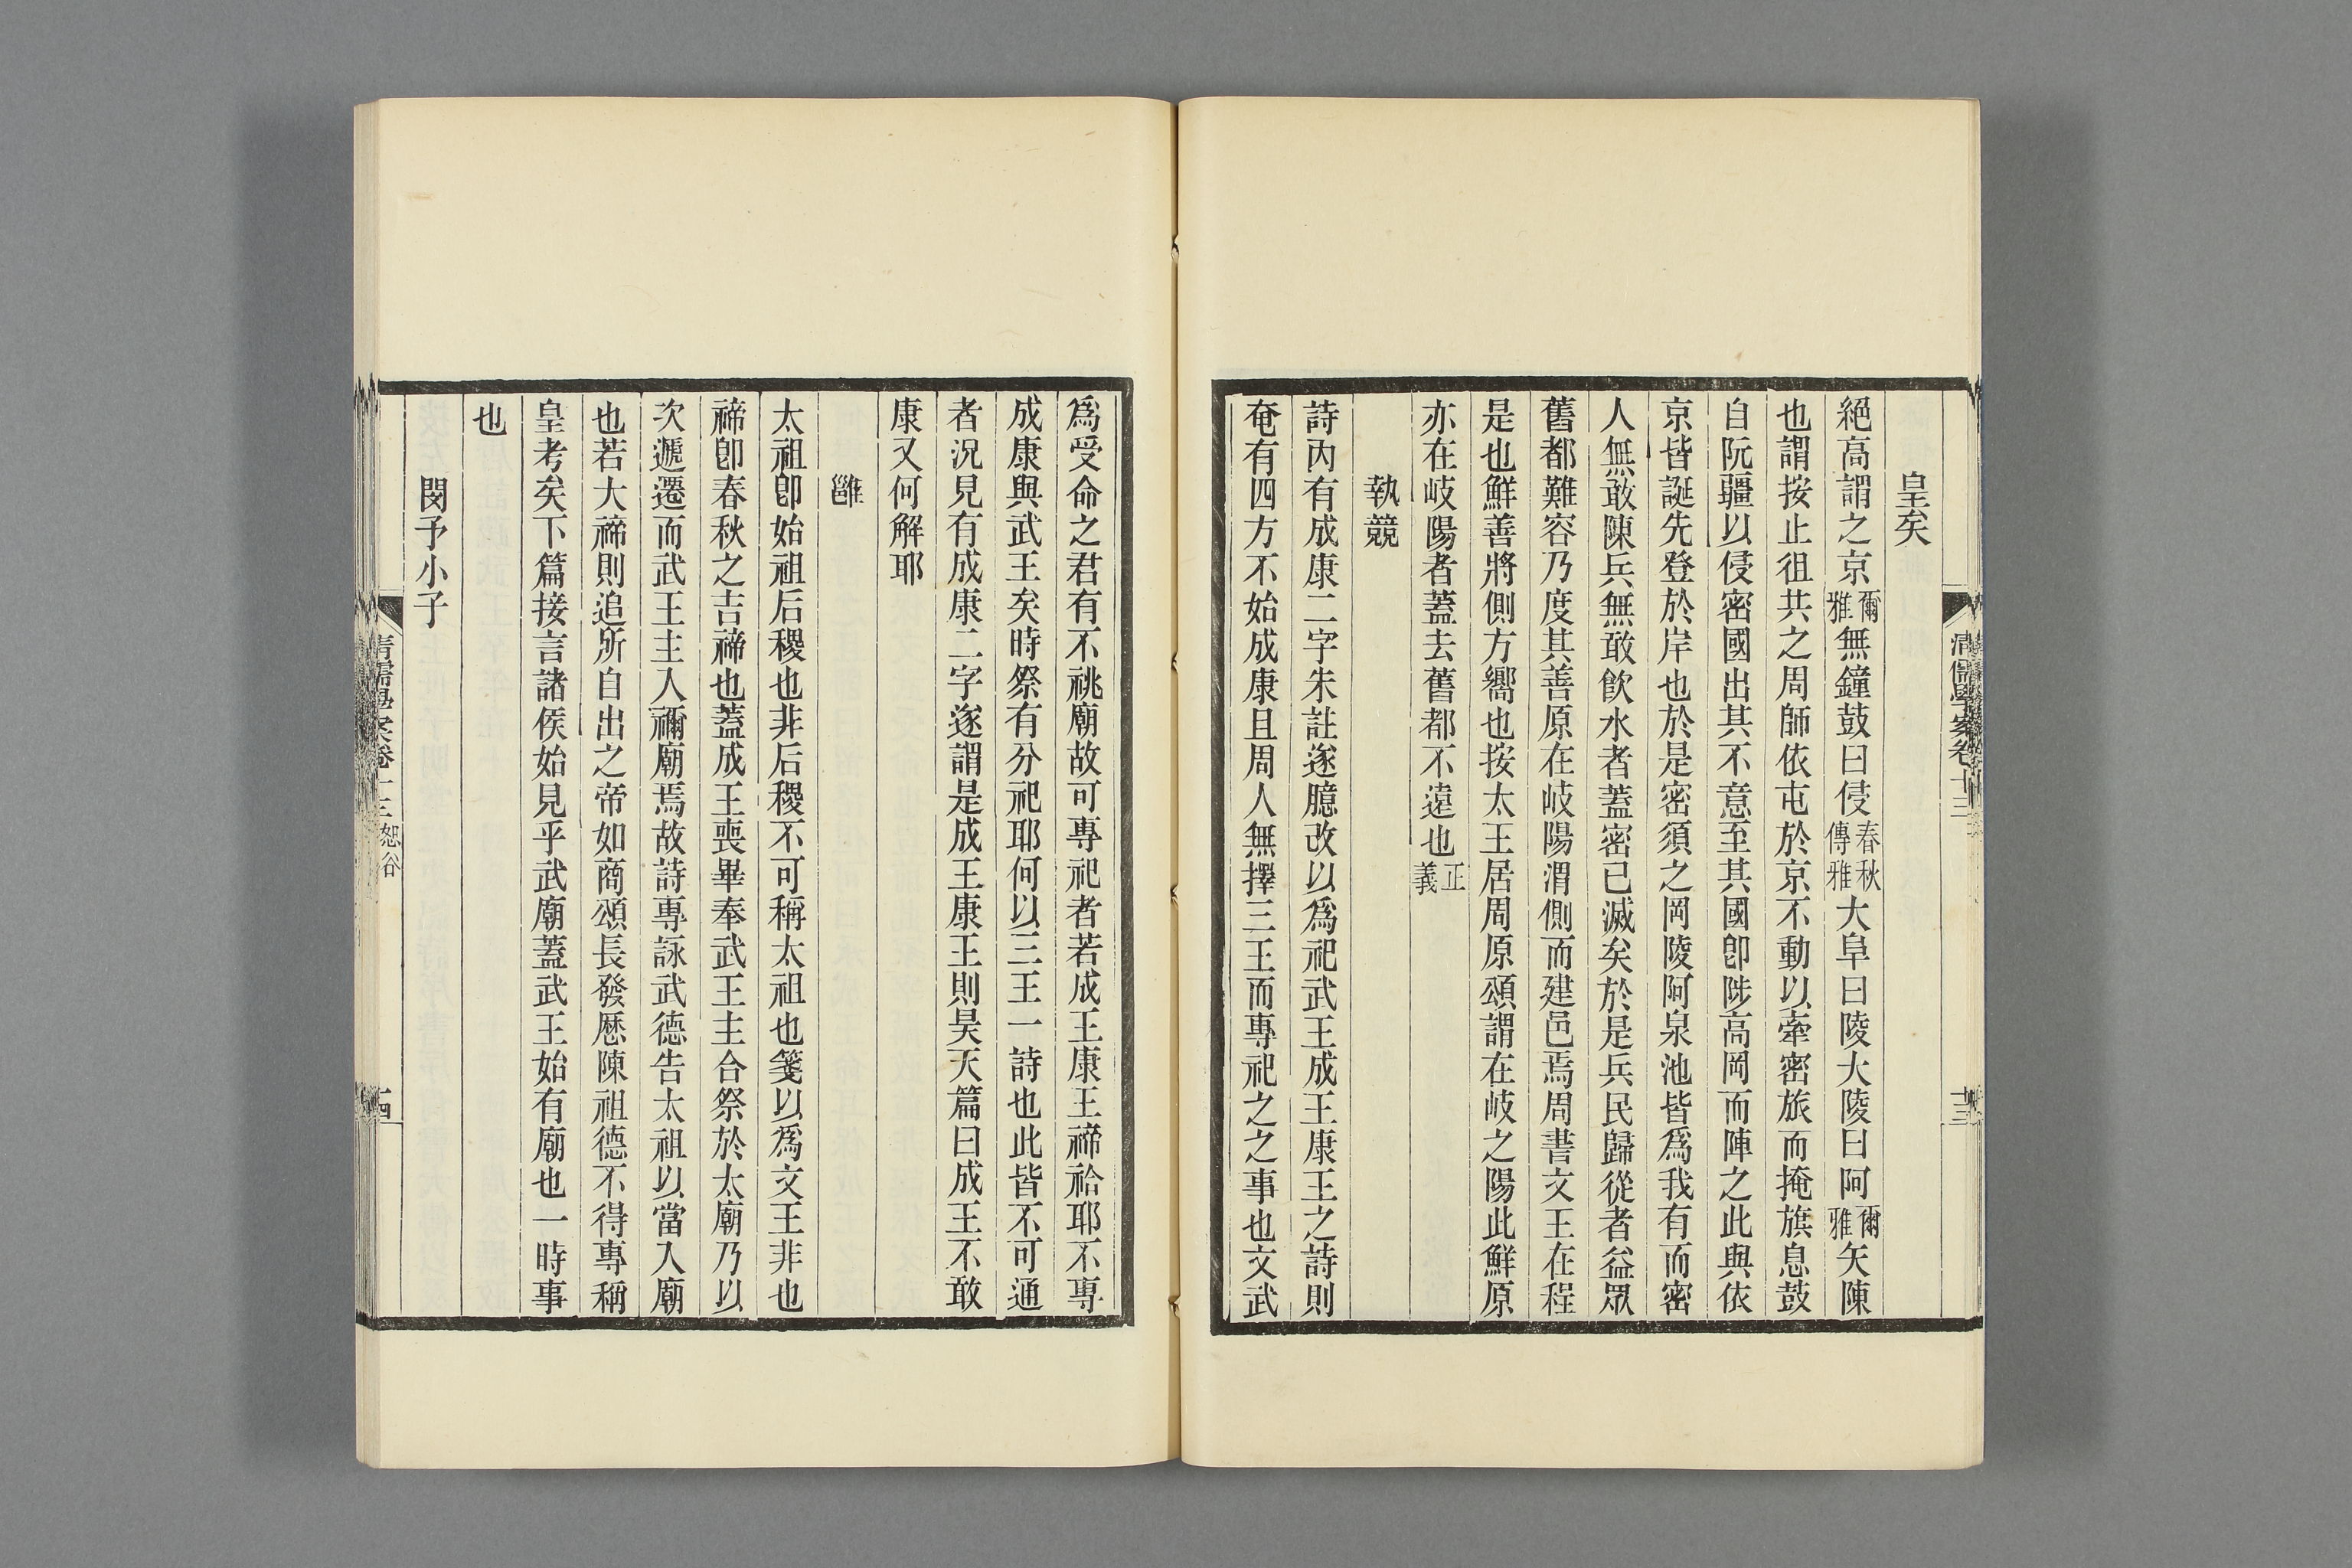 清儒學案卷十三
十三
皇矣
絕高謂之京爾雅無鐘鼓曰侵春秋傳雅大阜曰陵大陵曰阿爾雅矢陳
也謂按止徂共之周師依屯於京不動以牽密旅而掩旗息鼓
自阮疆以侵密國出其不意至其國卽陟高岡而陣之此與依
京皆誕先登於岸也於是密須之岡陵阿泉池皆爲我有而密
人無敢陳兵無敢飲水者蓋密已滅矣於是兵民歸從者益眾
舊都難容乃度其善原在岐陽渭側而建邑焉周書文王在程
是也鮮善將側方嚮也按太王居周原頌謂在岐之陽此鮮原
亦在岐陽者蓋去舊都不遠也正義
執競
詩內有成康二字朱註遂臆改以爲祀武王成王康王之詩則
奄有四方不始成康且周人無擇三王而專祀之之事也文武
爲受命之君有不祧廟故可專祀者若成王康王禘祫耶不專
成康與武王矣時祭有分祀耶何以三王一詩也此皆不可通
者況見有成康二字遂謂是成王康王則昊天篇曰成王不敢
康又何解耶
雝
太祖卽始祖后稷也非后稷不可稱太祖也箋以爲文王非也
禘卽春秋之吉禘也蓋成王喪畢奉武王主合祭於太廟乃以
次遞遷而武王主入禰廟焉故詩專詠武德告太祖以當入廟
也若大禘則追所自出之帝如商頌長發厯陳祖德不得專稱
皇考矣下篇接言諸侯始見乎武廟蓋武王始有廟也一時事
也
閔予小子
清儒學案卷十三 恕谷
十四